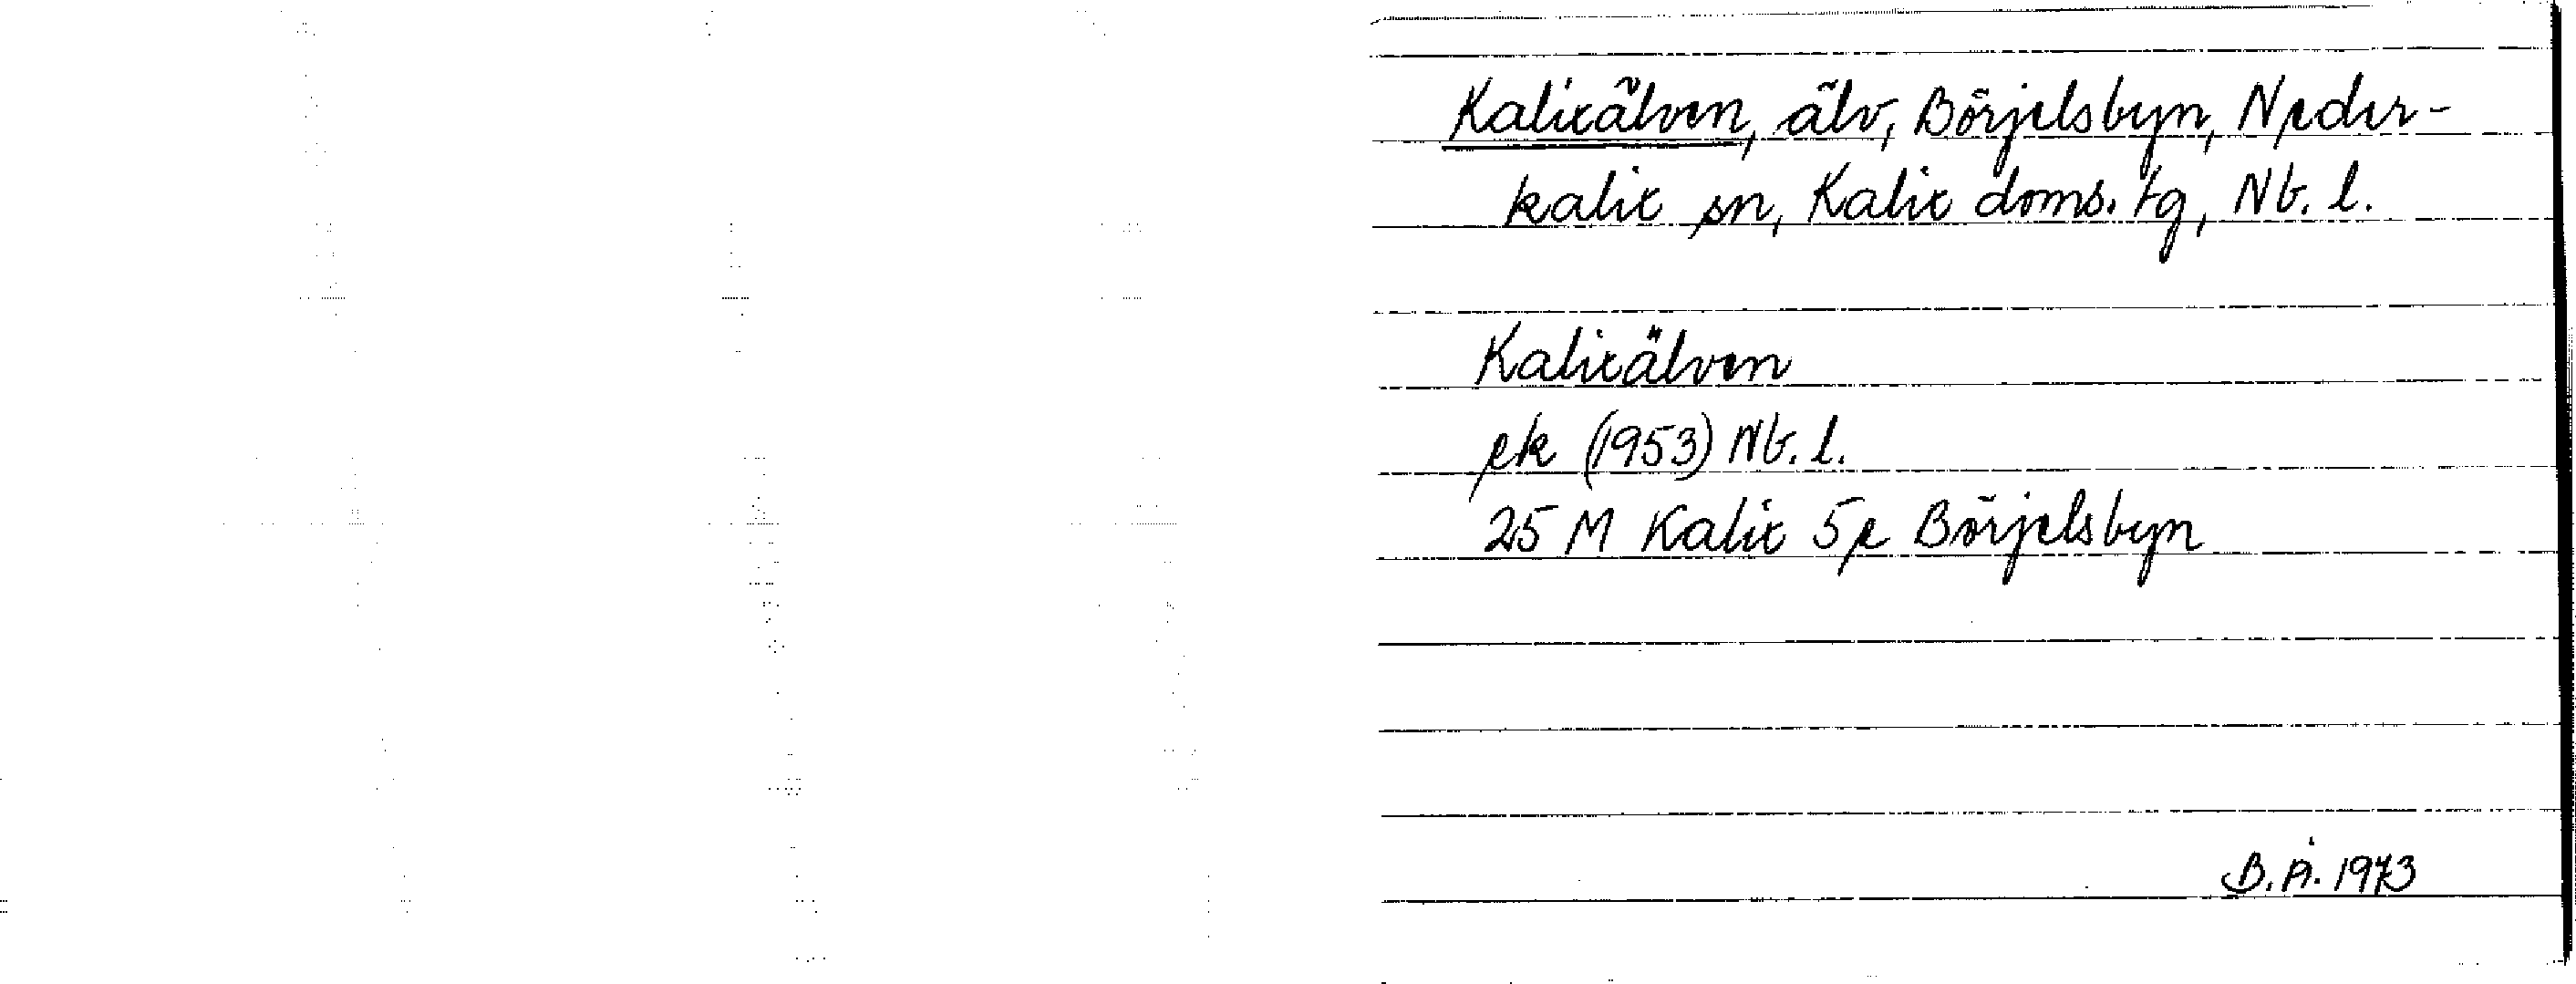 Kalixälven, älv, Börjelsbyn, Neder-
kalix sn, Kalix doms. tg, Nb. l.
Kalixälven
ek (1953) Nb. l.
25 M Kalix 5e Börjelsbyn
B. Å. 1973